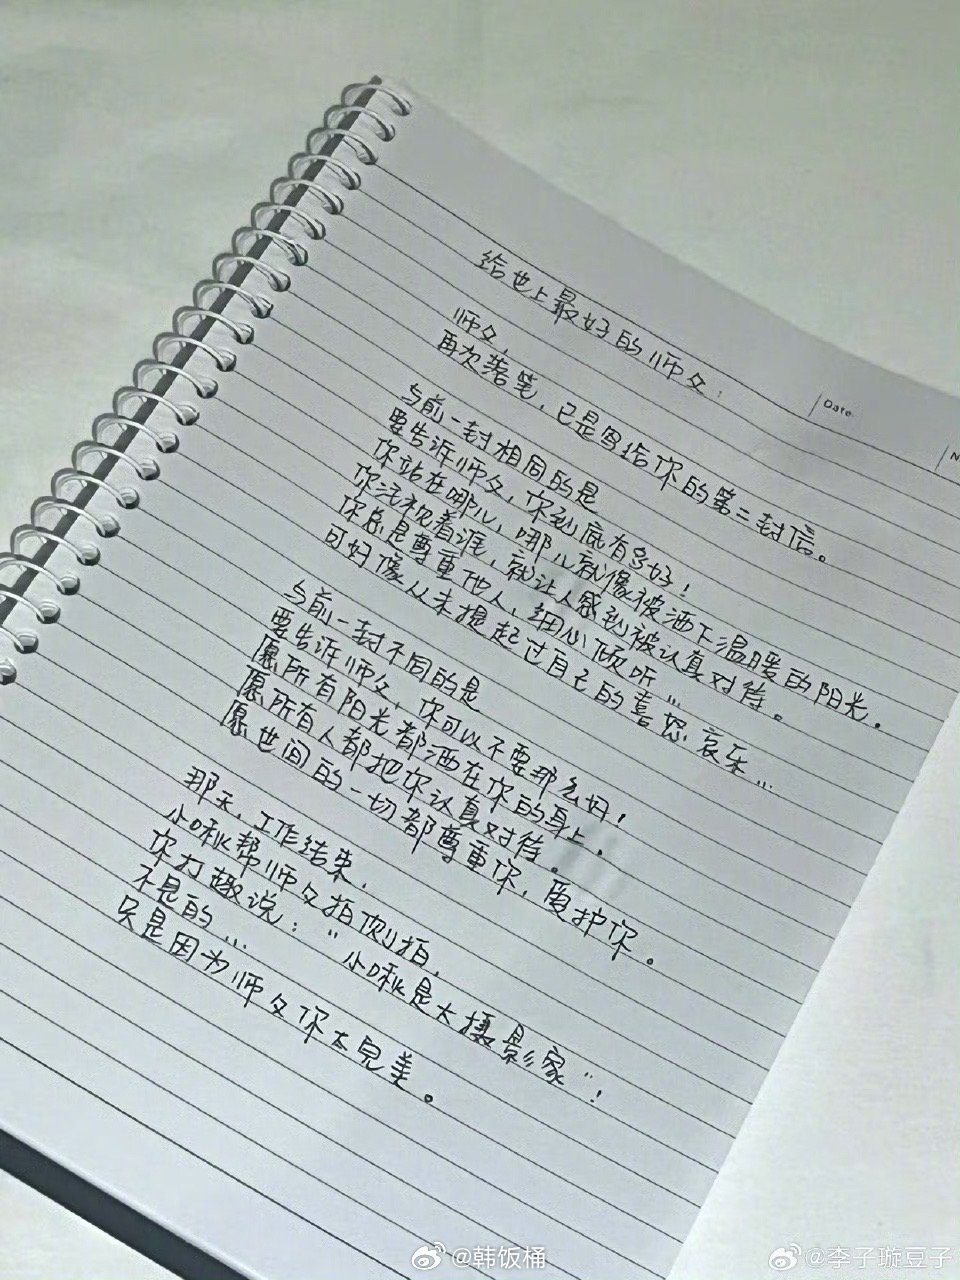 给世上最好的师父:
Date
师父,
再次落笔,已是写给你的第二封信。
与前一封相同的是
要告诉师父,你到底有多好!
你站在哪儿,哪儿就像被洒下温暖的阳光。
你注视着谁,就让人感到被认真对待。
你总是尊重他人,细心倾听…
可好像从未提起过自己的喜怒哀乐…
与前一封不同的是
要告诉师父,你可以不要那么好!
愿所有阳光都洒在你的身上,
愿所有人都把你认真对待。
愿世间的一切都尊重你,爱护你。
那天,工作结束,
小啾帮师父拍侧拍,
你打趣说:“小啾是大摄影家”!
不是的…
只是因为师父你太完美。
@韩饭桶
@李子璇豆子